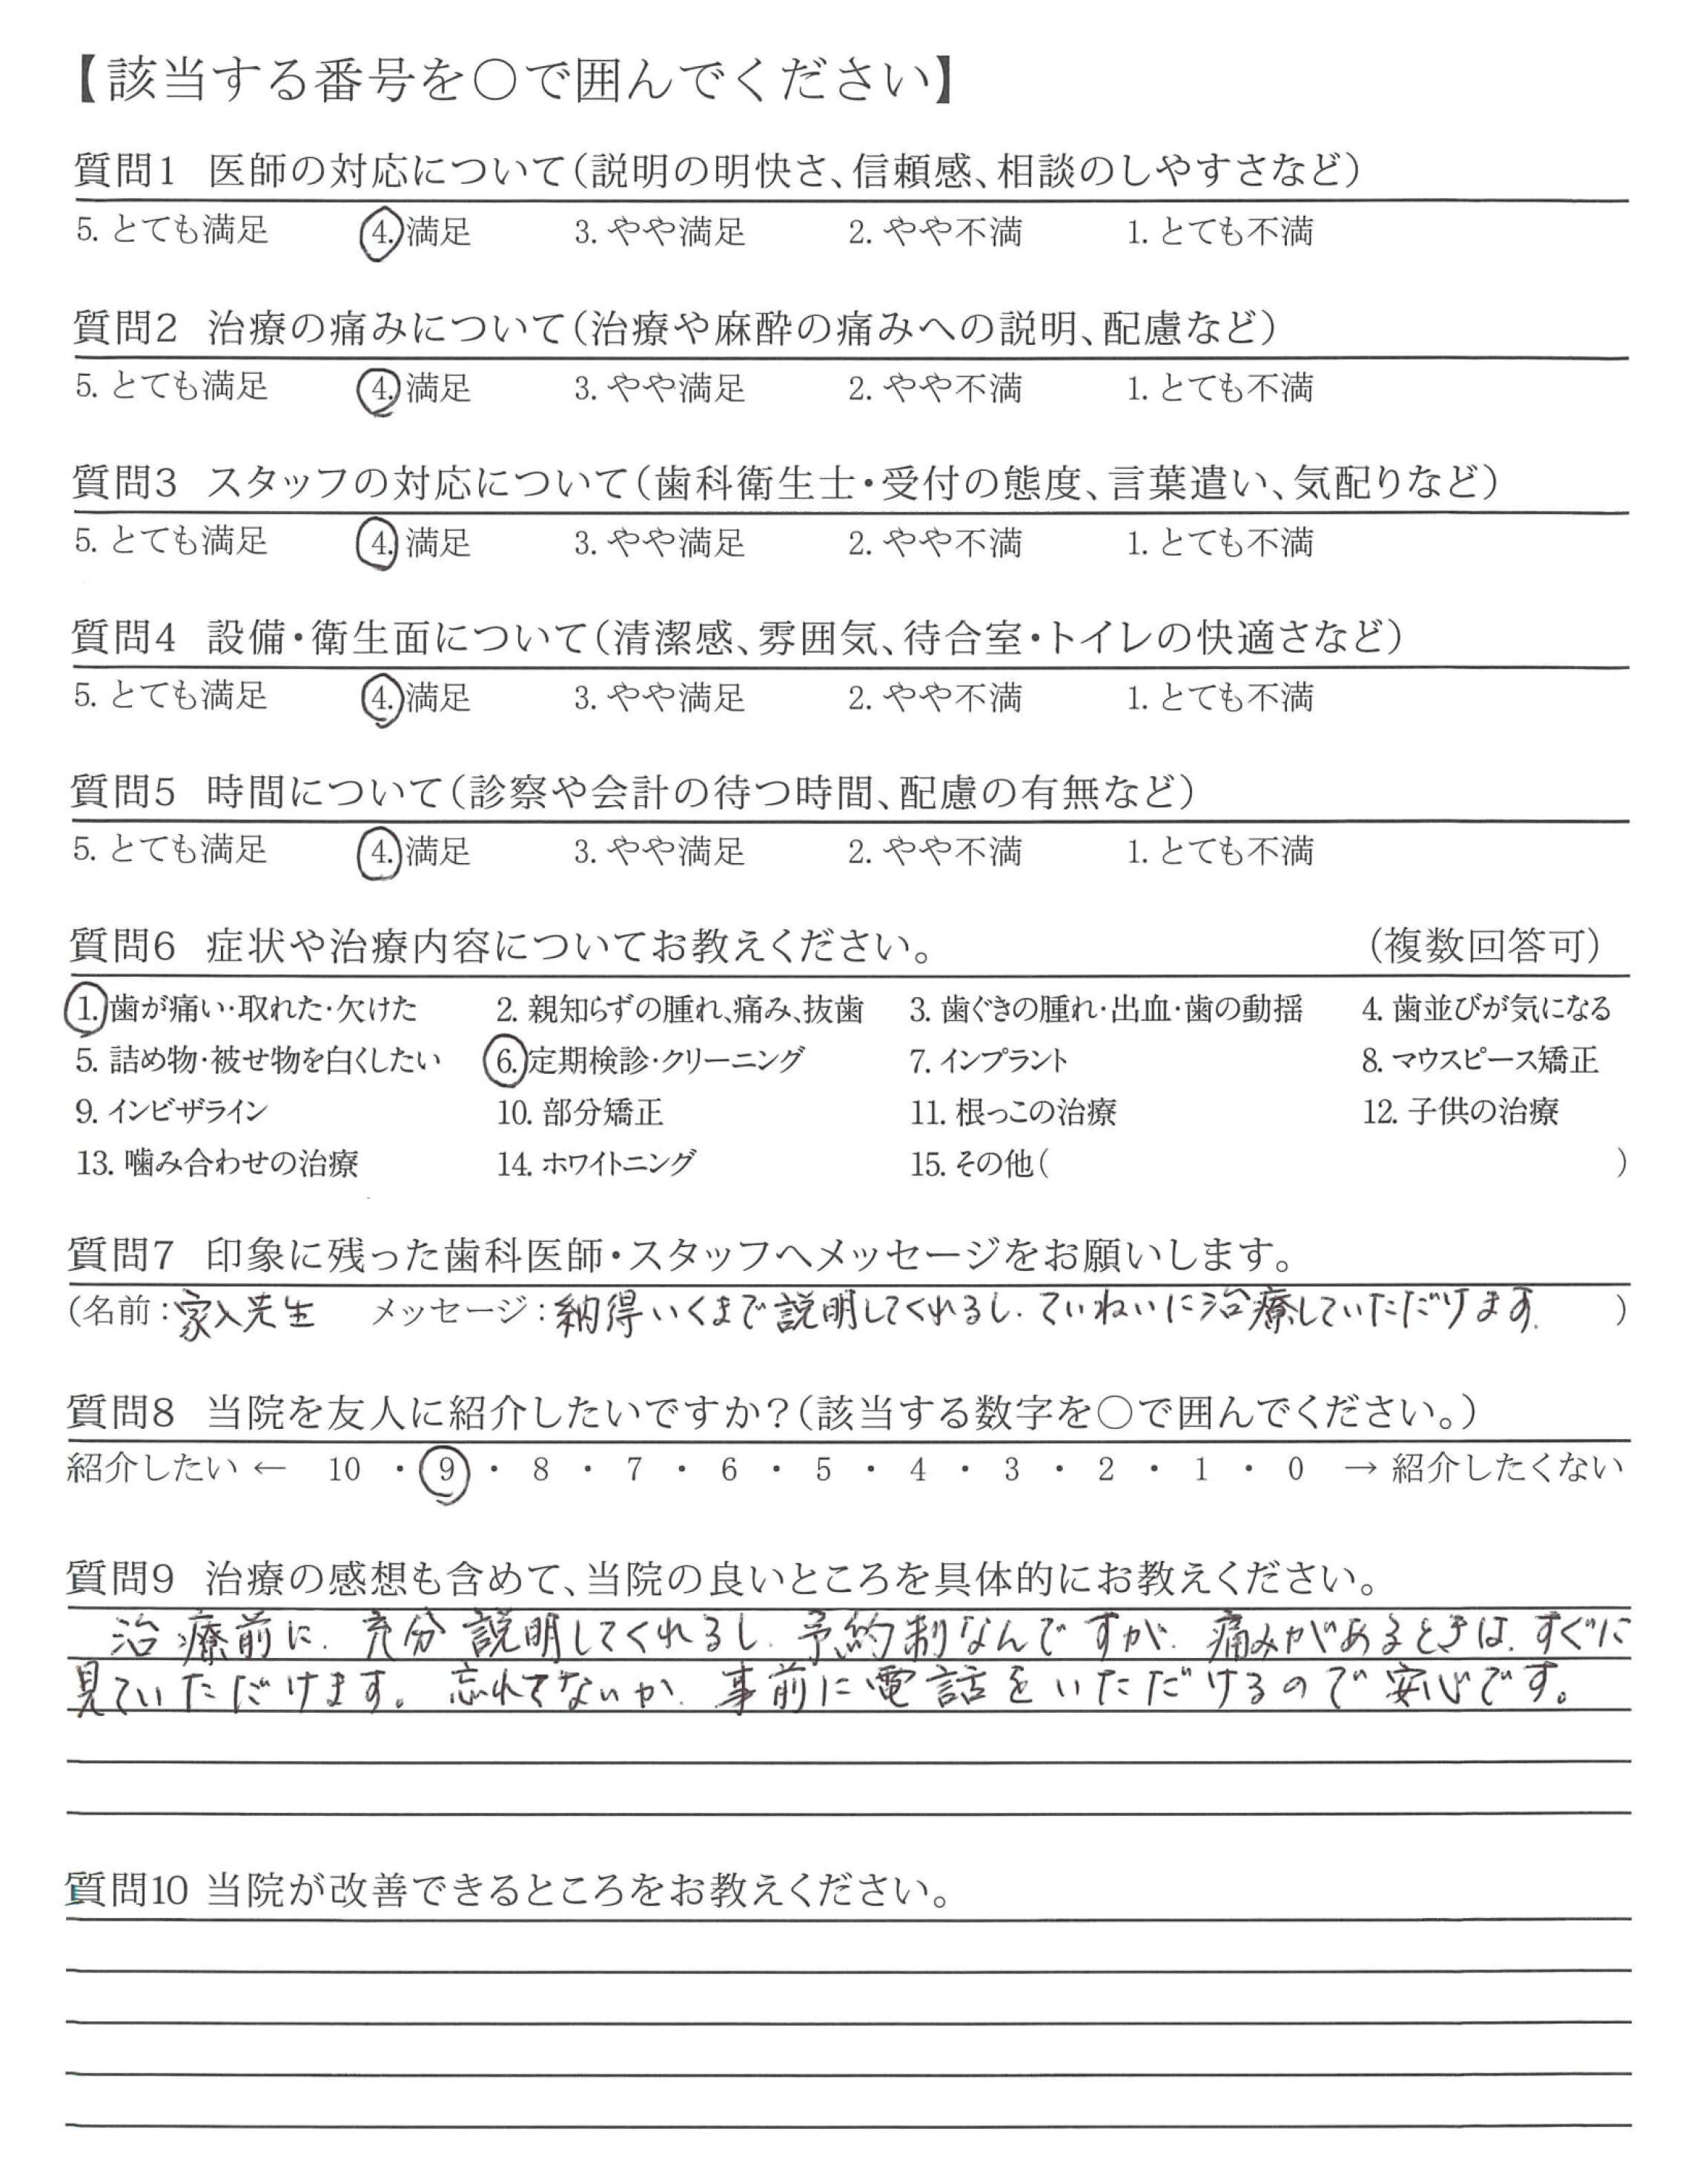 【該当する番号を○で囲んでください】
質問1 医師の対応について(説明の明快さ、信頼感、相談のしやすさなど)
5. とても満足 4. 満足 3. やや満足 2. やや不満 1. とても不満
質問2 治療の痛みについて(治療や麻酔の痛みへの説明、配慮など)
5. とても満足 4. 満足 3. やや満足 2. やや不満 1. とても不満
質問3 スタッフの対応について(歯科衛生士・受付の態度、言葉遣い、気配りなど)
5. とても満足 4. 満足 3. やや満足 2. やや不満 1. とても不満
質問4 設備・衛生面について(清潔感、雰囲気、待合室・トイレの快適さなど)
5. とても満足 4. 満足 3. やや満足 2. やや不満 1. とても不満
質問5 時間について(診察や会計の待つ時間、配慮の有無など)
5. とても満足 4. 満足 3. やや満足 2. やや不満 1. とても不満
質問6 症状や治療内容についてお教えください。 (複数回答可)
1. 歯が痛い・取れた・欠けた 2. 親知らずの腫れ、痛み、抜歯 3. 歯ぐきの腫れ・出血・歯の動揺 4. 歯並びが気になる
5. 詰め物・被せ物を白くしたい 6. 定期検診・クリーニング 7. インプラント 8. マウスピース矯正
9. インビザライン 10. 部分矯正 11. 根っこの治療 12. 子供の治療
13. 噛み合わせの治療 14. ホワイトニング 15. その他( )
質問7 印象に残った歯科医師・スタッフへメッセージをお願いします。
(名前:家入先生 メッセージ:納得いくまで説明してくれるし、ていねいに治療していただけます。 )
質問8 当院を友人に紹介したいですか?(該当する数字を○で囲んでください。)
紹介したい ← 10 ・ 9 ・ 8 ・ 7 ・ 6 ・ 5 ・ 4 ・ 3 ・ 2 ・ 1 ・ 0 → 紹介したくない
質問9 治療の感想も含めて、当院の良いところを具体的にお教えください。
治療前に、充分説明してくれるし、予約制なんですが、痛みがあるときは、すぐに
見ていただけます。忘れてないか、事前に電話をいただけるので安心です。
質問10 当院が改善できるところをお教えください。